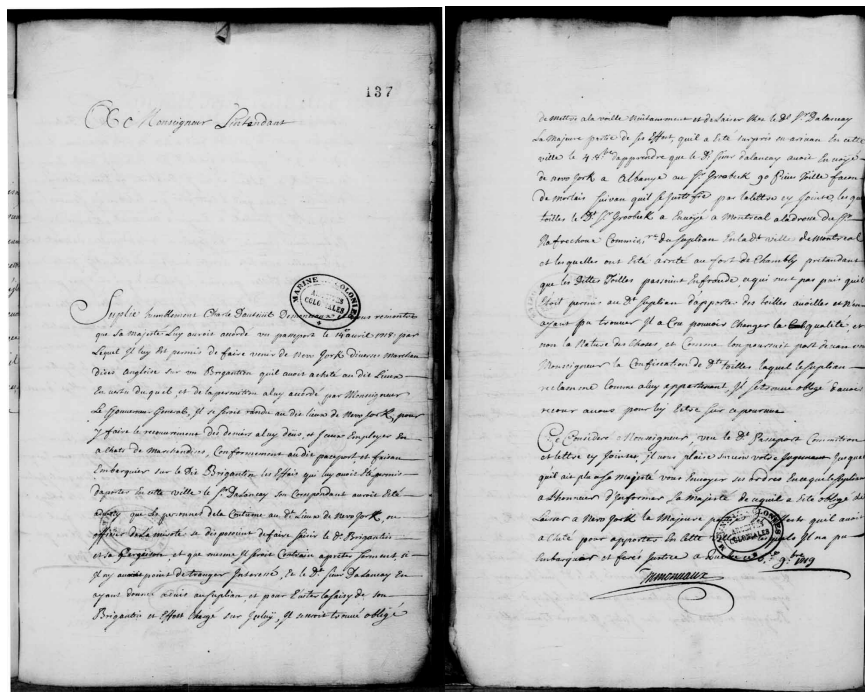 137
A Monseigneur Lintendant
MARINE COLONIES
ARCHIVES
COLONIALES
Suplie humblement Charle Dauteüil Demonceaux vous remontre
que sa majesté Luy auroit acordé un passport le 14 avril 1718 par
Lequel Il luy est permis de faire venir de New york diverses marchan
dises angloise sur un Brigantin quil avoit acheté au dit Lieux
En vertu du quel et de la permition a luy acordé par Monseigneur
Le Gouverneur General, Il se seroit randu au dit lieux de New york, pour
y faire le recouvrement des deniers a luy deüs, et Iceux Employer En
achats de Marchandises, Conformement audit passeport et faisant
Embarquer sur le dit Brigantin les Effais qui luy avoit Eté permis
daporter En cette ville le Sr. Dalancay son Corespondant auroit Eté
que Le personnel de la Coutume au dt Lieux de New york, ou
officier de la se disposoient de faire saisir le Dt Brigantin
et sa Cargaison et que mesme Il feroit Certain apres serment si
Il ny avoit point detranger Interessé, & le Dt. sieur Dalancay En
ayant donné avis au supliant et pour Eviter la saisy de son
Brigantin et Effest chargé sur Iceluy, Il auroit Eté obligé
de mettre a la voille Nuitamment et de Laiser Chez le Dt Sr. Dalancay
La Majeure partie de ses Effest, quil a Eté surpris en arivan En cette
ville le 4 8bre daprendre que le Dt. sieur dalancay avoit Envoyé
de New york a Albanye au Sr. Groobeck 90 Toille facon
de morlais suivan quil se Justifie par la lettre cy Jointe, les que
toilles le Dt. Sr. Groobek a Envoyé a Montreal a ladresse du Sr.
Lafrechone Commis re du supliant En la dt ville de Montreal
et lesquelles ont Eté arreté au fort de Chambly pretandant
que les Dittes Toilles passoient En fraude, ce qui nest pas puis quil
Etoit permis au Dt supliant daporter des toilles et Nen
ayant pu trouver Il a Cru pouvoir Changer la qualité, et
non la Nature des Choses, et Comme lon poursuit par devan vous
Monseigneur La Confiscation de Dt toilles laquel le supliant
reclamme Comme a luy appartenant, Il se trouve obligé davoir
recour a vous pour luy Estre sur ce pourveu
Ce Consideré Monseigneur, veu le Dt. Passeport Commition
et lettre cy Jointes, Il vous plaise surceoir votre Jugement Jusque
quil aie plu a Sa Majesté vous Envoyer ses ordres En ce que le supliant
a Lhonneur dInformer Sa Majesté de ce quil a Eté obligé de
Laisser a New york la Majeure Effests quil avoit
achété pour apporter En Cette quels Il na pu
Embarquer et ferés Justice a Quebec ce 6e 9bre 1719
Dumonceaux
MARINE COLONIES
ARCHIVES
COLONIALES